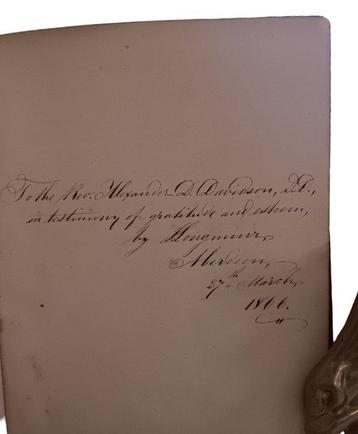 To the Rev: Alexander D. Davidson, D.D.,
in testimony of gratitude and esteem,
by Longmuir,
Aberdeen,
27th March,
1866.